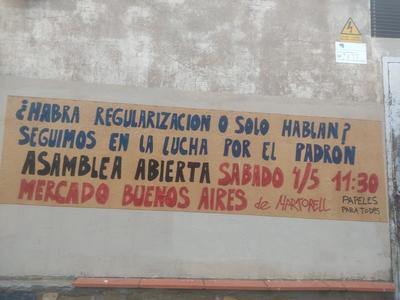 ¿HABRA REGULARIZACION O SOLO HABLAN?
SEGUIMOS EN LA LUCHA POR EL PADRON
ASAMBLEA ABIERTA SABADO 4/5 11:30
MERCADO BUENOS AIRES de MARTORELL
PAPELES
PARA TODOS